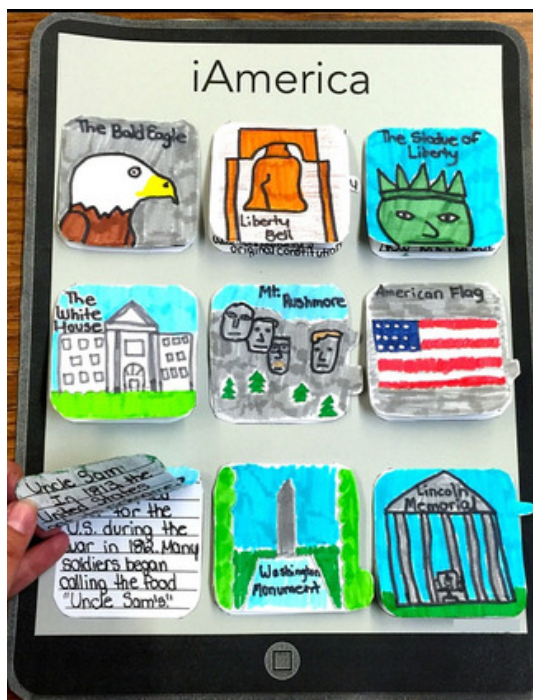 iAmerica
The Bald Eagle
Liberty
Bell
original constitution
The Stadue of
Liberty
The
White
House
Mt.
Rushmore
American Flag
Uncle Sam:
In 1813, the
United States
for the
U.S. during the
war in 1812. Many
soldiers began
calling the food
"Uncle Sam's."
Washington
Monument
Lincoln
Memorial